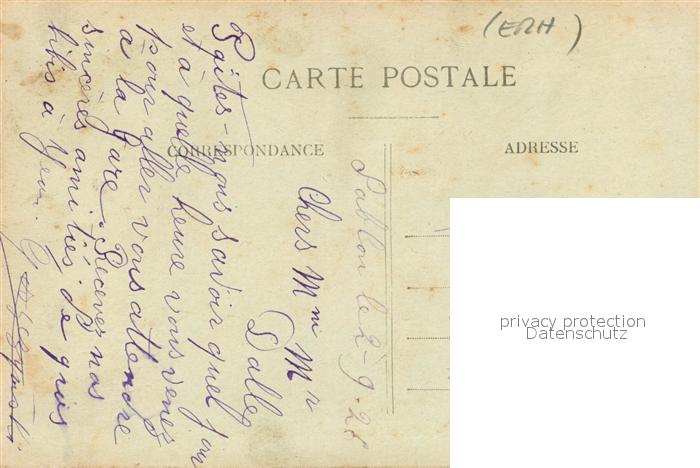 (ERH)
CARTE POSTALE
CORRESPONDANCE
ADRESSE
Sablon le 2-9-25
Chers Mm Mr
Dalle
Faites-nous savoir quel jour
et à quelle heure vous venez
pour aller vous attendre
à la gare. Recevez nos
sincères amitiés de
à
privacy protection
Datenschutz